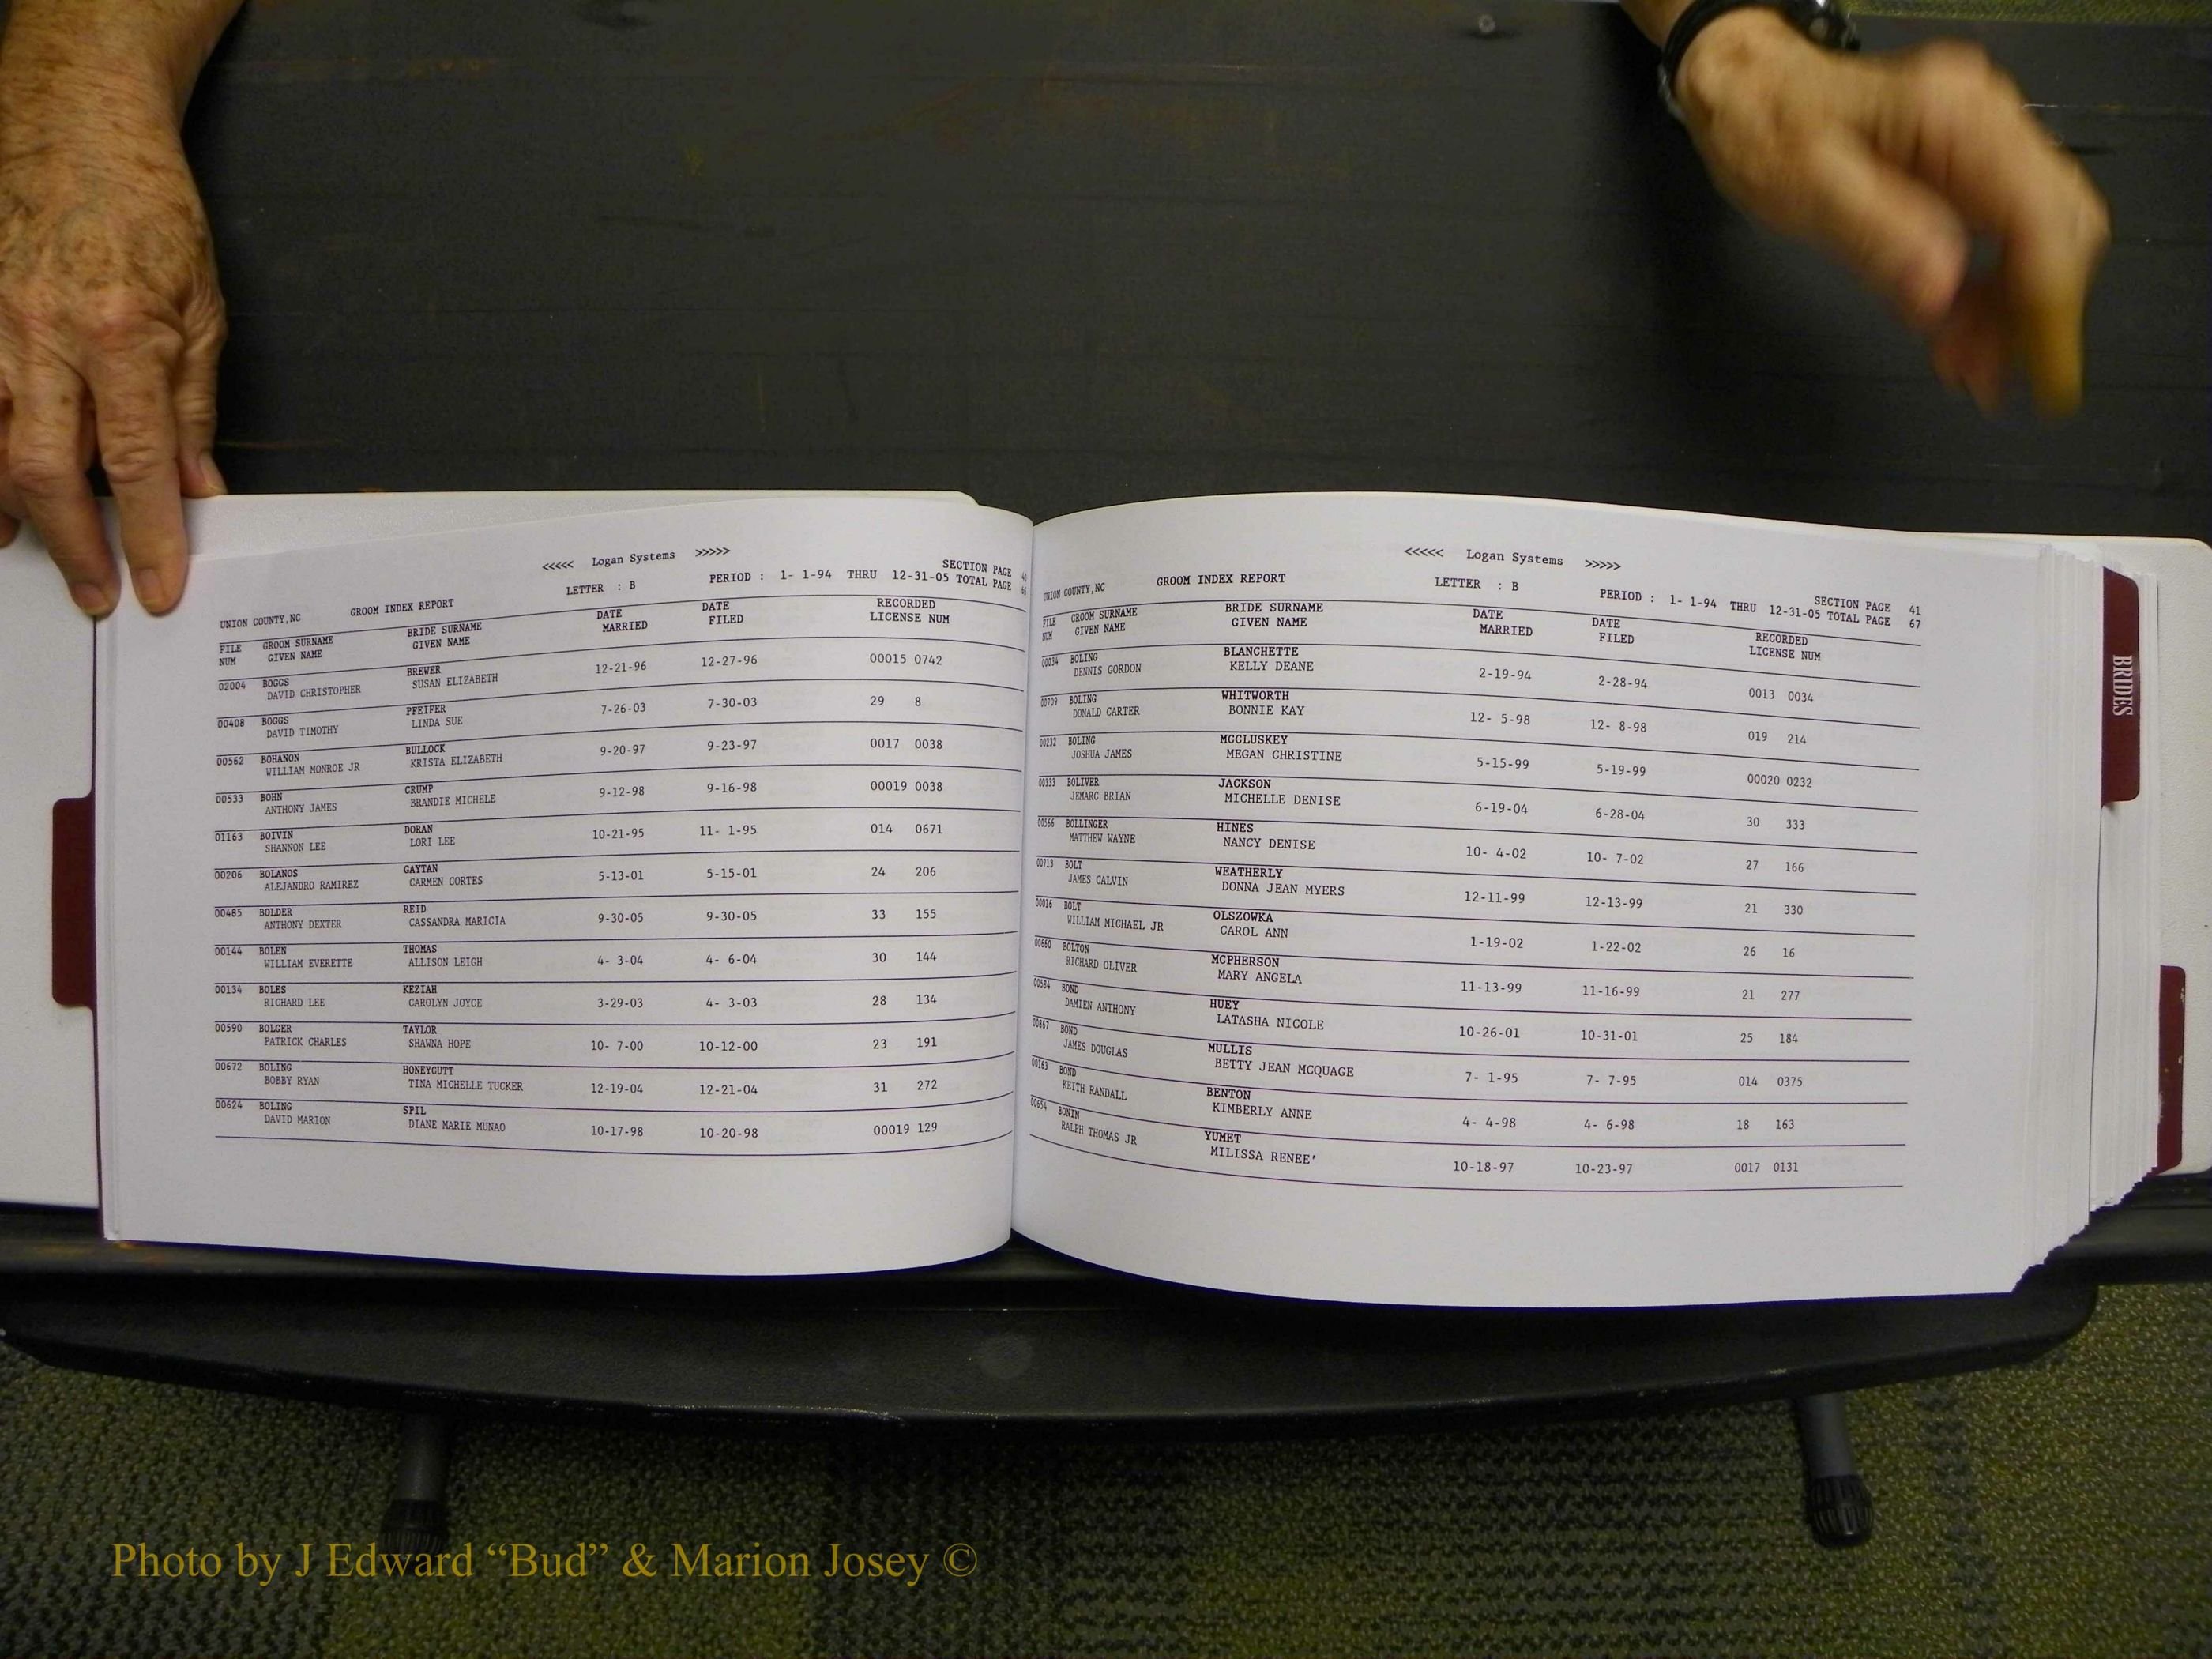 <<<<< Logan Systems >>>>>
UNION COUNTY,NC GROOM INDEX REPORT LETTER : B PERIOD : 1- 1-94 THRU 12-31-05 SECTION PAGE
TOTAL PAGE
FILE NUM GROOM SURNAME GIVEN NAME BRIDE SURNAME GIVEN NAME DATE MARRIED DATE FILED RECORDED LICENSE NUM
02004 BOGGS BREWER 12-21-96 12-27-96 00015 0742
DAVID CHRISTOPHER SUSAN ELIZABETH
00408 BOGGS PFEIFER 7-26-03 7-30-03 29 8
DAVID TIMOTHY LINDA SUE
00562 BOHANON BULLOCK 9-20-97 9-23-97 0017 0038
WILLIAM MONROE JR KRISTA ELIZABETH
00533 BOHN CRUMP 9-12-98 9-16-98 00019 0038
ANTHONY JAMES BRANDIE MICHELE
01163 BOIVIN DORAN 10-21-95 11- 1-95 014 0671
SHANNON LEE LORI LEE
00206 BOLANOS GAYTAN 5-13-01 5-15-01 24 206
ALEJANDRO RAMIREZ CARMEN CORTES
00485 BOLDER REID 9-30-05 9-30-05 33 155
ANTHONY DEXTER CASSANDRA MARICIA
00144 BOLEN THOMAS 4- 3-04 4- 6-04 30 144
WILLIAM EVERETTE ALLISON LEIGH
00134 BOLES KEZIAH 3-29-03 4- 3-03 28 134
RICHARD LEE CAROLYN JOYCE
00590 BOLGER TAYLOR 10- 7-00 10-12-00 23 191
PATRICK CHARLES SHAWNA HOPE
00672 BOLING HONEYCUTT 12-19-04 12-21-04 31 272
BOBBY RYAN TINA MICHELLE TUCKER
00624 BOLING SPIL 10-17-98 10-20-98 00019 129
DAVID MARION DIANE MARIE MUNAO
<<<<< Logan Systems >>>>>
UNION COUNTY,NC GROOM INDEX REPORT LETTER : B PERIOD : 1- 1-94 THRU 12-31-05 SECTION PAGE 41
TOTAL PAGE 67
FILE NUM GROOM SURNAME GIVEN NAME BRIDE SURNAME GIVEN NAME DATE MARRIED DATE FILED RECORDED LICENSE NUM
00034 BOLING BLANCHETTE 2-19-94 2-28-94 0013 0034
DENNIS GORDON KELLY DEANE
00709 BOLING WHITWORTH 12- 5-98 12- 8-98 019 214
DONALD CARTER BONNIE KAY
00232 BOLING MCCLUSKEY 5-15-99 5-19-99 00020 0232
JOSHUA JAMES MEGAN CHRISTINE
00333 BOLIVER JACKSON 6-19-04 6-28-04 30 333
JEMARC BRIAN MICHELLE DENISE
00566 BOLLINGER HINES 10- 4-02 10- 7-02 27 166
MATTHEW WAYNE NANCY DENISE
00713 BOLT WEATHERLY 12-11-99 12-13-99 21 330
JAMES CALVIN DONNA JEAN MYERS
00016 BOLT OLSZOWKA 1-19-02 1-22-02 26 16
WILLIAM MICHAEL JR CAROL ANN
00660 BOLTON MCPHERSON 11-13-99 11-16-99 21 277
RICHARD OLIVER MARY ANGELA
00584 BOND HUEY 10-26-01 10-31-01 25 184
DAMIEN ANTHONY LATASHA NICOLE
00867 BOND MULLIS 7- 1-95 7- 7-95 014 0375
JAMES DOUGLAS BETTY JEAN MCQUAGE
00163 BOND BENTON 4- 4-98 4- 6-98 18 163
KEITH RANDALL KIMBERLY ANNE
00654 BONIN YUMET 10-18-97 10-23-97 0017 0131
RALPH THOMAS JR MILISSA RENEE'
BRIDES
Photo by J Edward “Bud” & Marion Josey ©